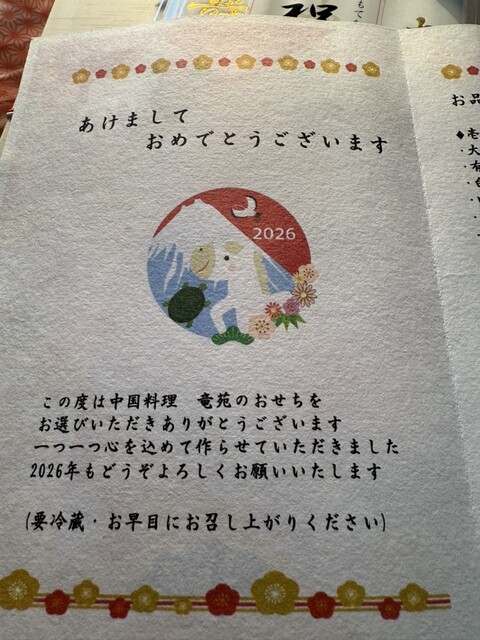 祝
あけまして
おめでとうございます
2026
この度は中国料理　竜苑のおせちを
お選びいただきありがとうございます
一つ一つ心を込めて作らせていただきました
2026年もどうぞよろしくお願いいたします
(要冷蔵・お早目にお召し上がりください)
お品
◆壱
・大
・有